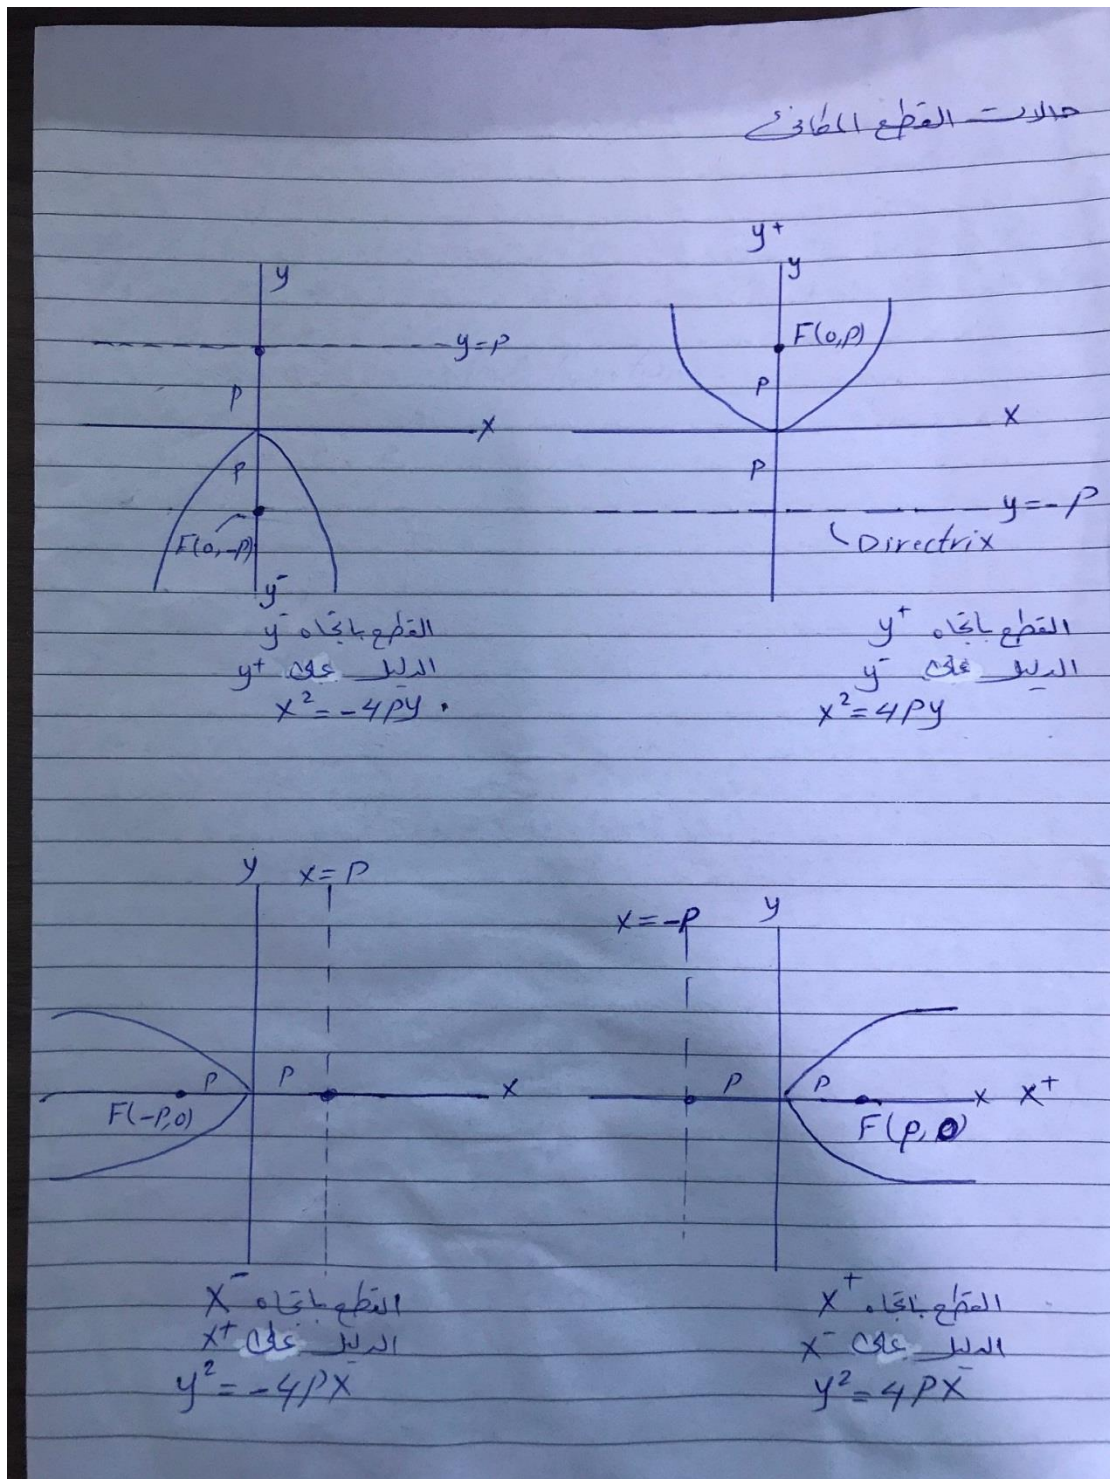 حالات القطع المكافئ
y+
y
F(0,P)
P
x
P
y=-P
Directrix
القطع باتجاه y+
الدليل على y-
x²=4Py
y
y=P
P
x
P
F(0,-P)
y-
القطع باتجاه y-
الدليل على y+
x²=-4Py
x=-P
y
P
P
x x+
F(P,0)
القطع باتجاه x+
الدليل على x-
y²=4Px
y
x=P
P
P
x
F(-P,0)
القطع باتجاه x-
الدليل على x+
y²=-4Px